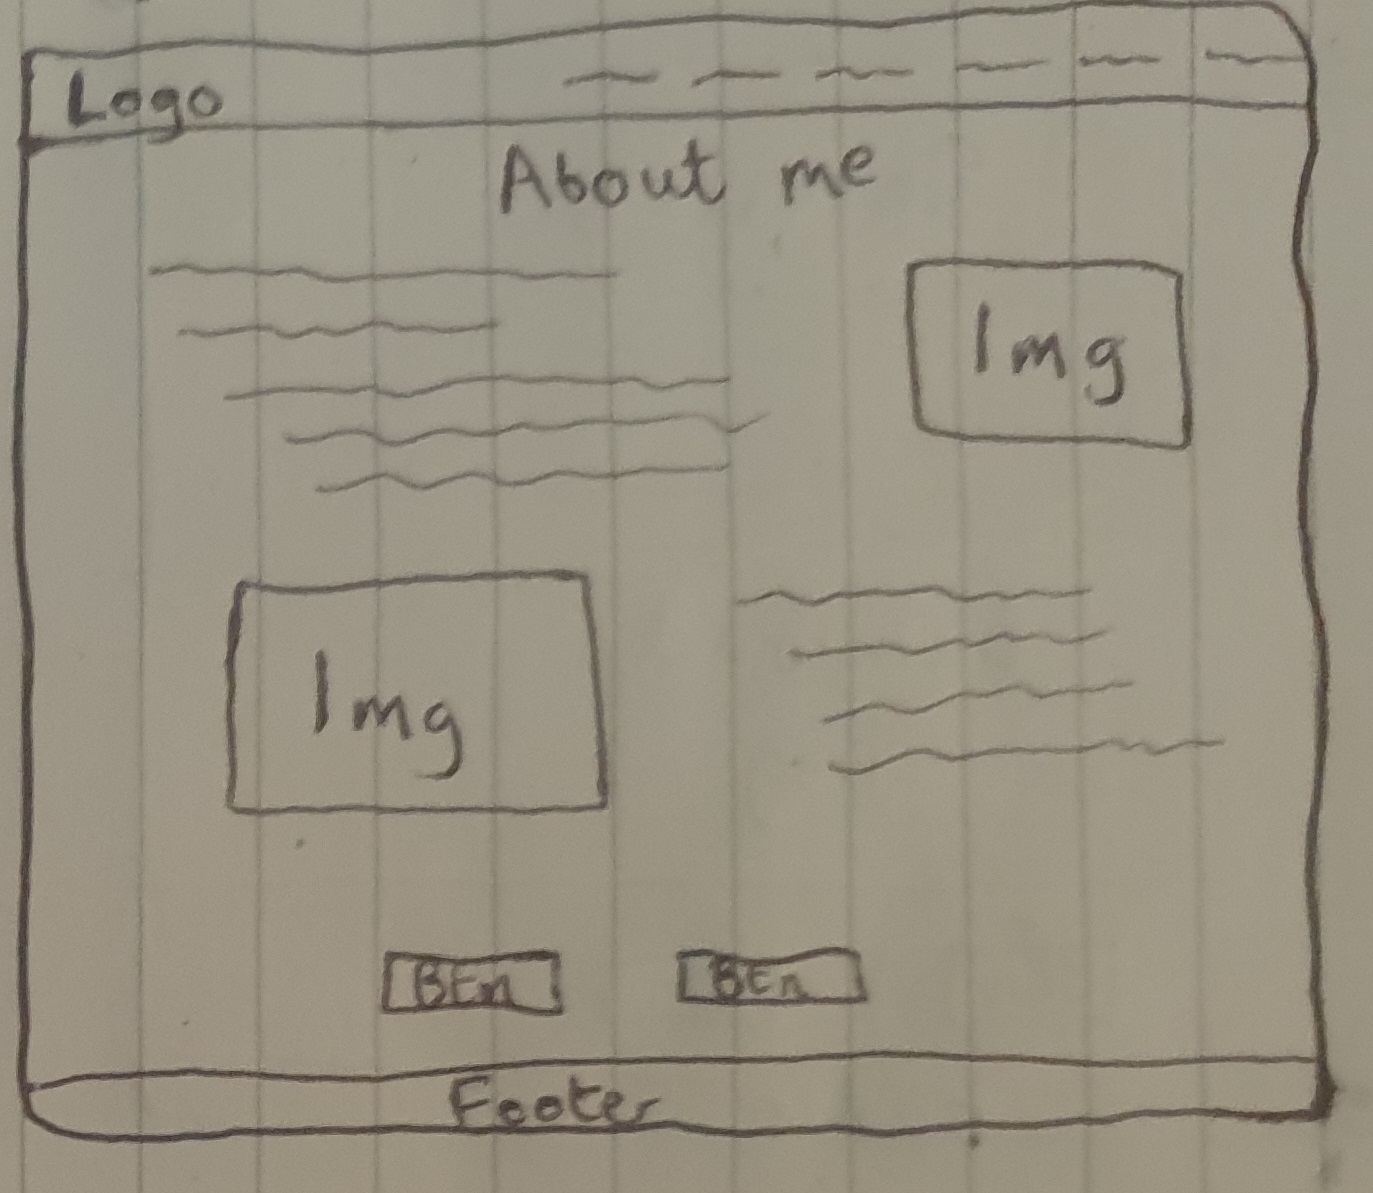 Logo
About me
Img
Img
Btn Btn
Footer